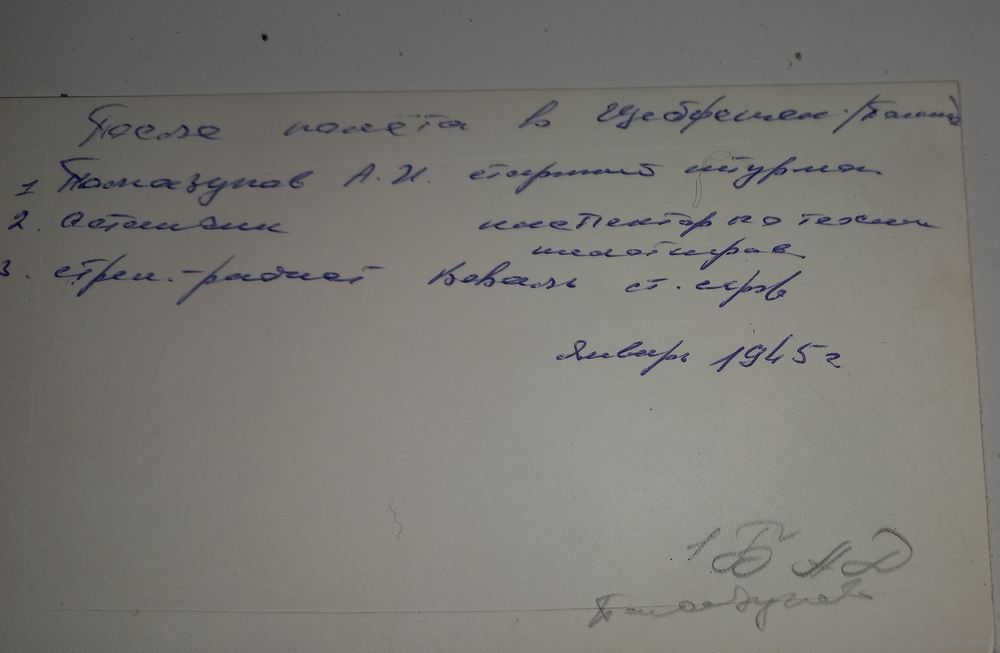 После полёта в Щебрешен /Польша/
1 Помазунов А.И. старший штурман
2. Осташкин инспектор по техни
пилотиров
3. стрел.-радист Коваль ст. серж
Январь 1945 г
1 БАД
Помазунов